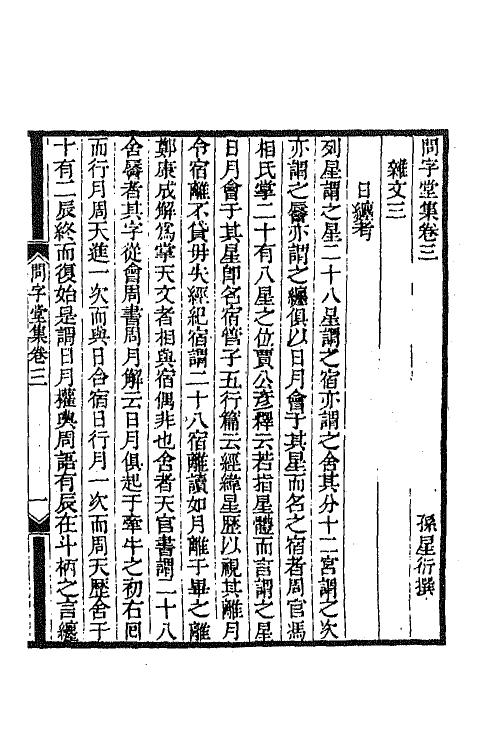 問字堂集卷三
孫星衍撰
雜文三
日纏考
列星謂之星二十八星謂之宿亦謂之舍其分十二宮謂之次
亦謂之辰亦謂之纏俱以日月會于其星而名之宿者周官馮
相氏掌二十有八星之位賈公彥釋云若指星體而言謂之星
日月會于其星卽名宿管子五行篇云經緯星歷以視其離月
令宿離不貸毋失經紀宿謂二十八宿離讀如月離于畢之離
鄭康成解爲掌天文者相與宿偶非也舍者天官書謂二十八
舍辰者其字從會周書周月解云日月俱起于牽牛之初右回
而行月周天進一次而與日合宿日行月一次而周天歷舍于
十有二辰終而復始是謂日月權輿周語有辰在斗柄之言纏
問字堂集卷三
一